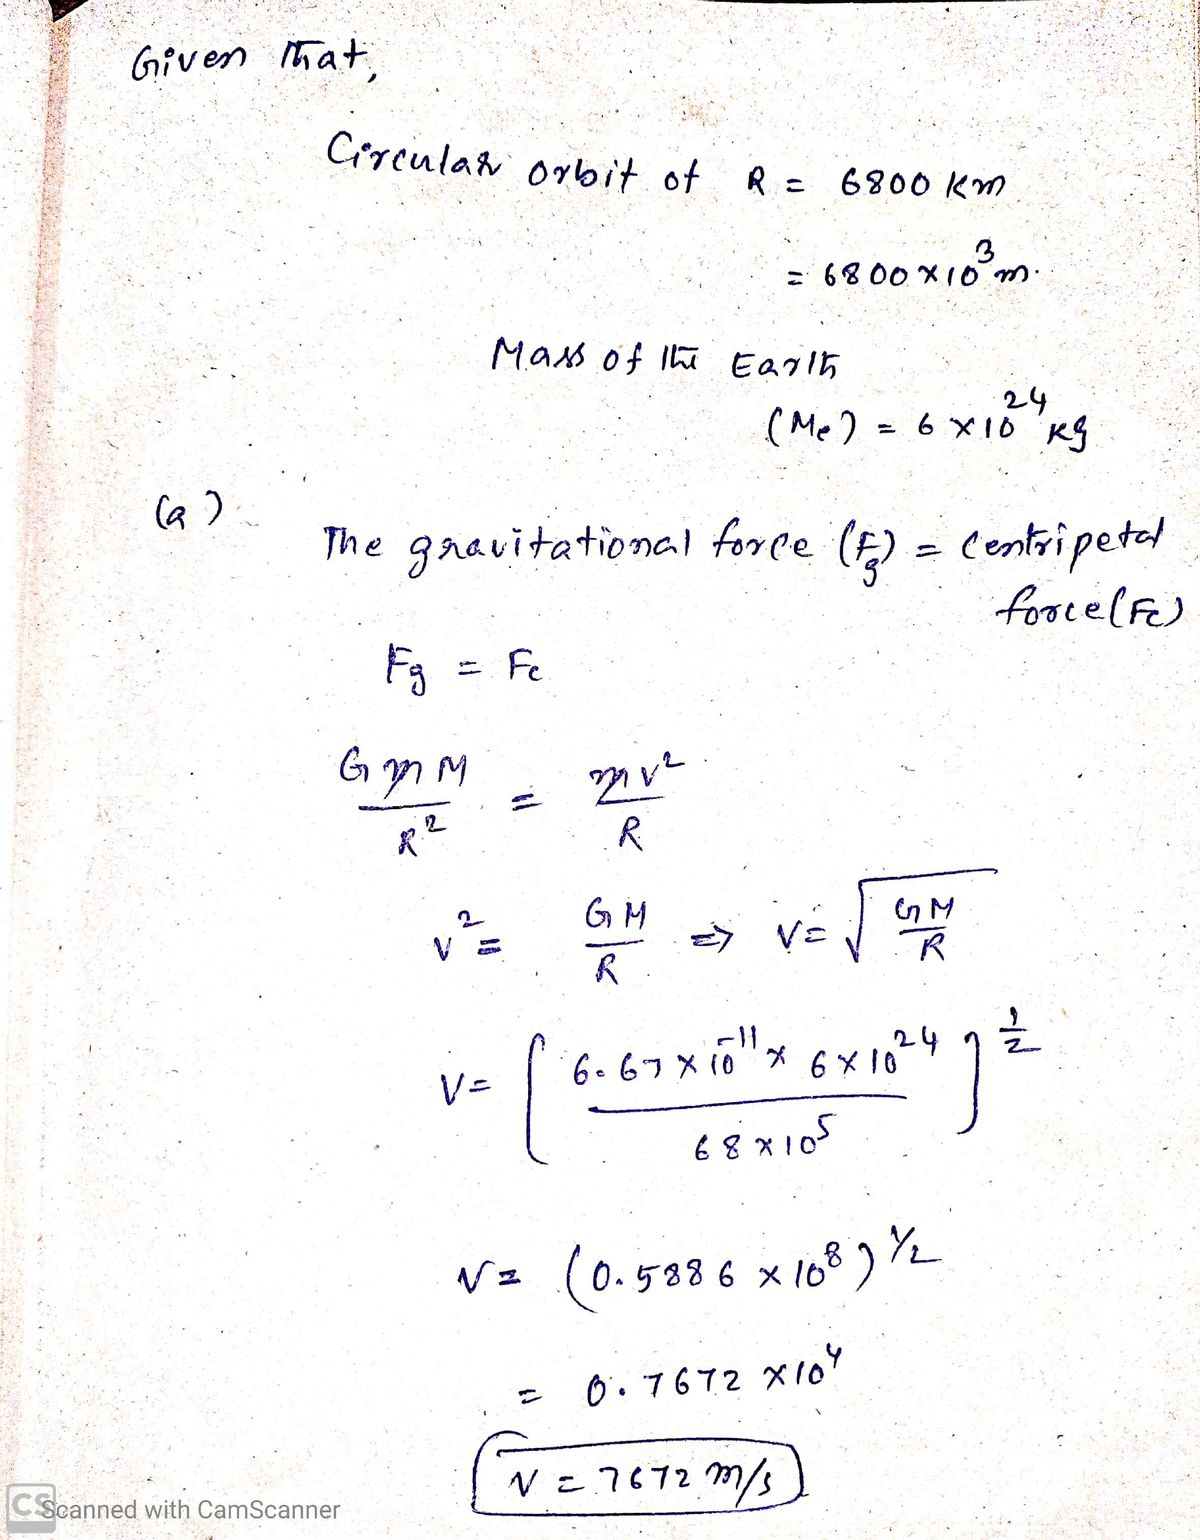 Given that,
Circular orbit of R = 6800 km
= 6800 × 10³ m.
Mass of the Earth
(Me) = 6 × 10²⁴ kg
(a)
The gravitational force (Fg) = centripetal
force (Fc)
Fg = Fc
GmM / R² = mv² / R
v² = GM / R ⇒ v = √(GM / R)
v = [ 6.67 × 10⁻¹¹ × 6 × 10²⁴ / 68 × 10⁵ ]^1/2
v = (0.5886 × 10⁸)^1/2
= 0.7672 × 10⁴
v = 7672 m/s
CS Scanned with CamScanner